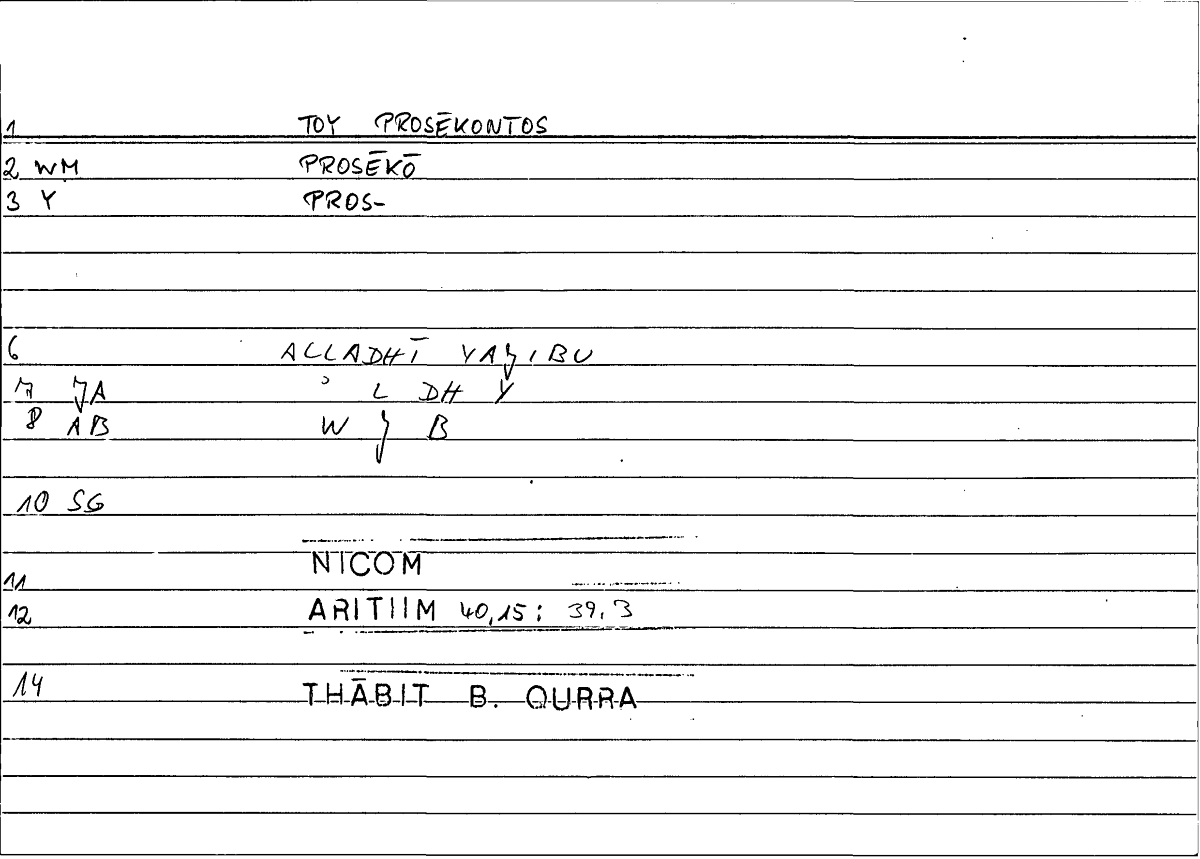 1 TOY PROSĒKONTOS
2 WM PROSĒKŌ
3 Y PROS-
6 ALLADHĪ YAJIBU
7 JA ʾ L DH Y
8 AB W J B
10 SG
11 NICOM
12 ARITIIM 40,15 : 39,3
14 THĀBIT B. QURRA